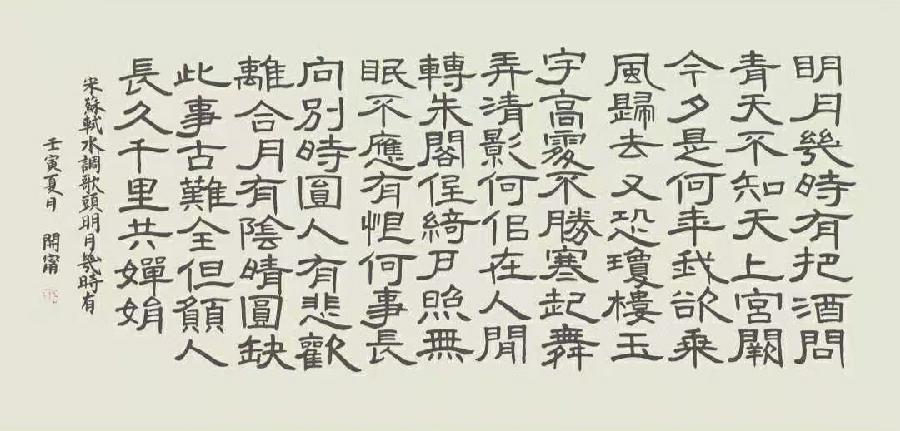 明月幾時有把酒問
青天不知天上宮闕
今夕是何年我欲乘
風歸去又恐瓊樓玉
宇高處不勝寒起舞
弄清影何佀在人間
轉朱閣低綺戶照無
眠不應有恨何事長
向別時圓人有悲歡
離合月有陰晴圓缺
此事古難全但願人
長久千里共嬋娟
宋蘇軾水調歌頭明月幾時有
壬寅夏月 開甯